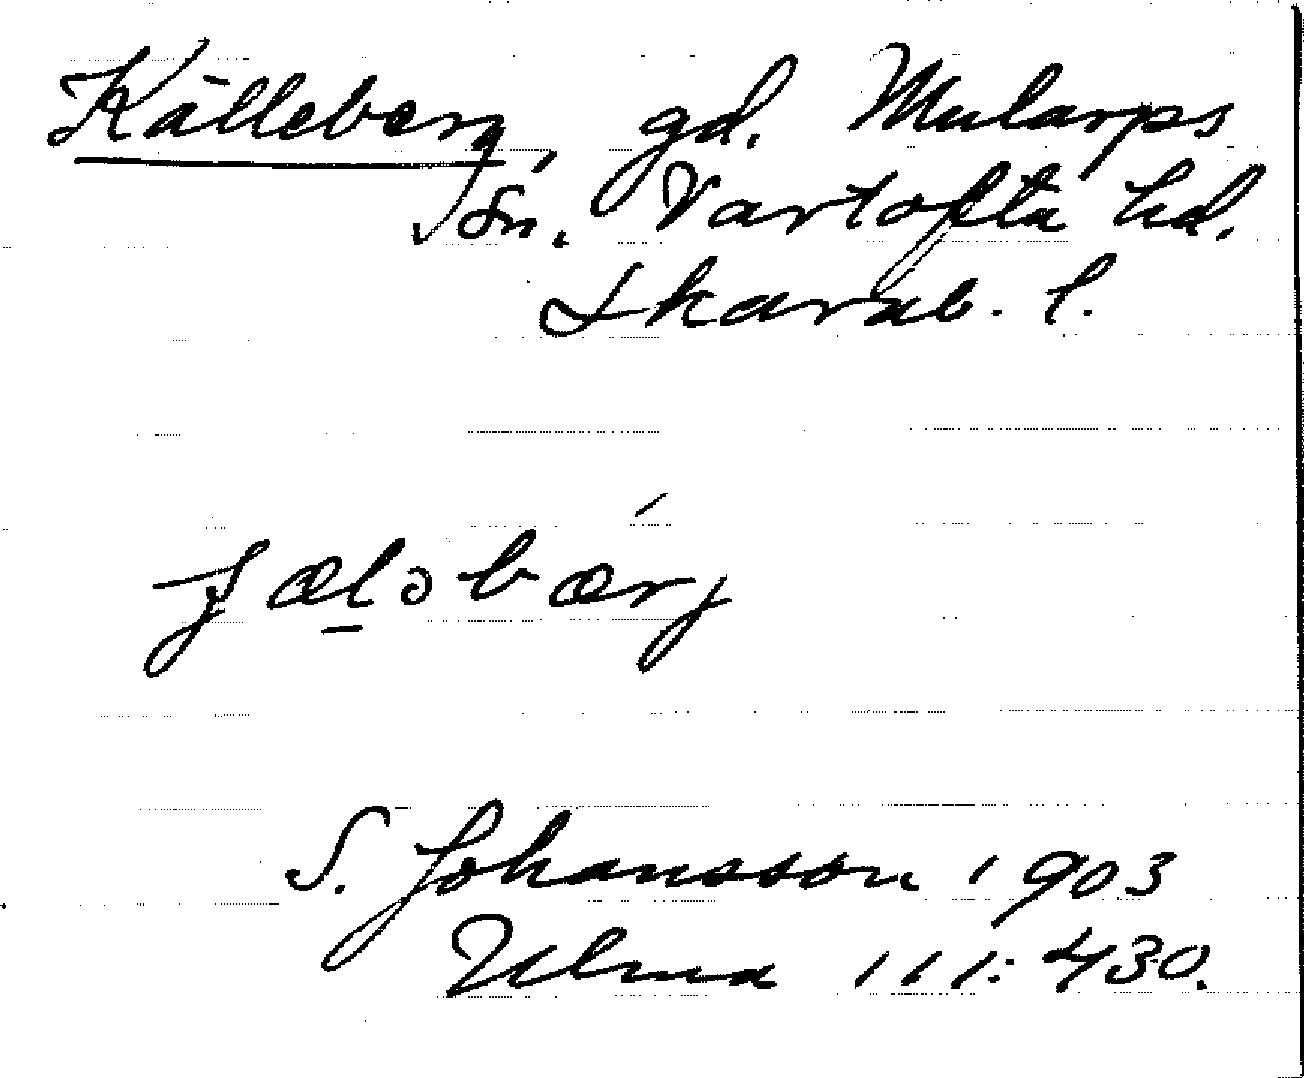 Källeberg, gd. Mularps
sn. Vartofta hd.
Skarab. l.
ɟæl̠ɔbærj
S. Johansson 1903
Ulma 111:430.